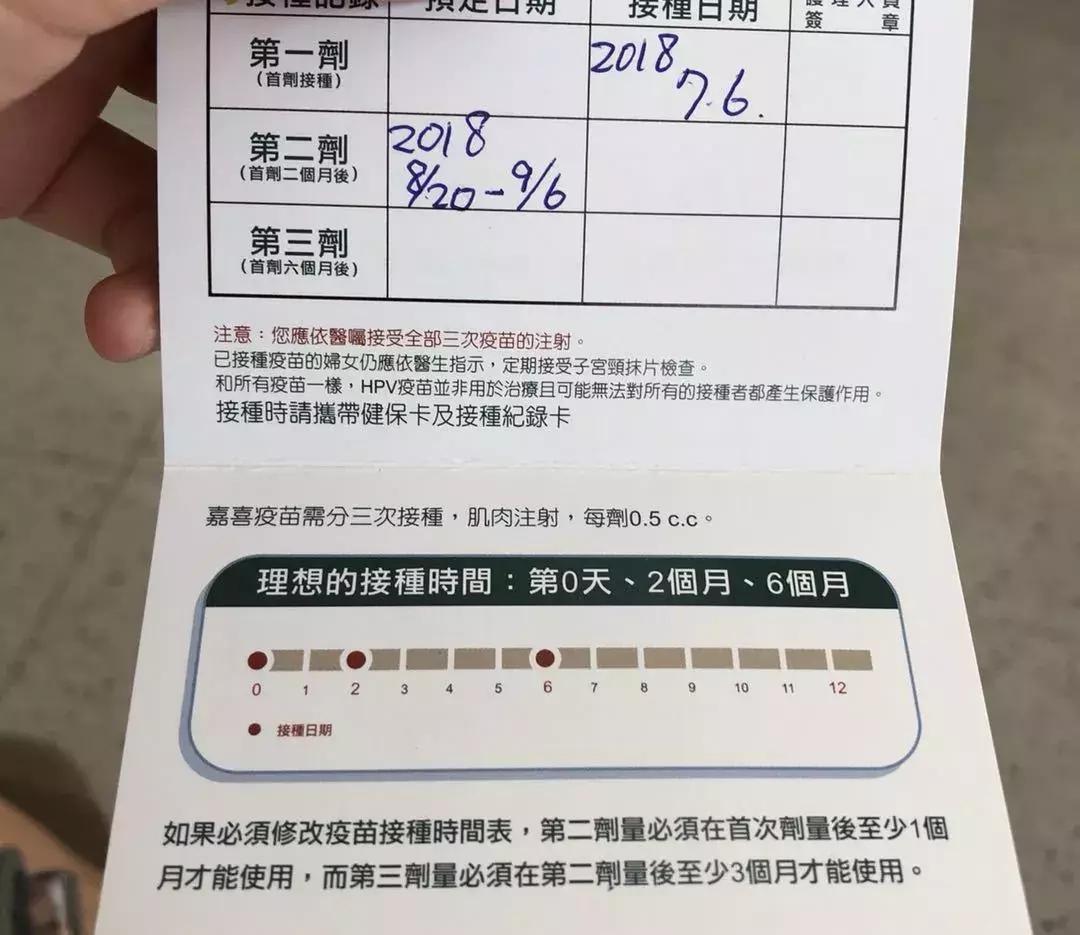 接種記錄 預定日期 接種日期 護理人員
簽章
第一劑 2018
(首劑接種) 7.6.
第二劑 2018
(首劑二個月後) 8/20-9/6
第三劑
(首劑六個月後)
注意：您應依醫囑接受全部三次疫苗的注射。
已接種疫苗的婦女仍應依醫生指示，定期接受子宮頸抹片檢查。
和所有疫苗一樣，HPV疫苗並非用於治療且可能無法對所有的接種者都產生保護作用。
接種時請攜帶健保卡及接種紀錄卡
嘉喜疫苗需分三次接種，肌肉注射，每劑0.5 c.c。
理想的接種時間：第0天、2個月、6個月
0 1 2 3 4 5 6 7 8 9 10 11 12
接種日期
如果必須修改疫苗接種時間表，第二劑量必須在首次劑量後至少1個
月才能使用，而第三劑量必須在第二劑量後至少3個月才能使用。